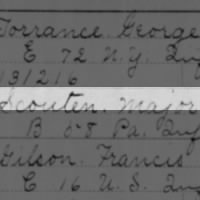 Torrance, George
E 72 N.Y. Inf
191216
Scouten, Major
B 58 Pa. Inf
Gilson, Francis
C 16 U.S. Inf